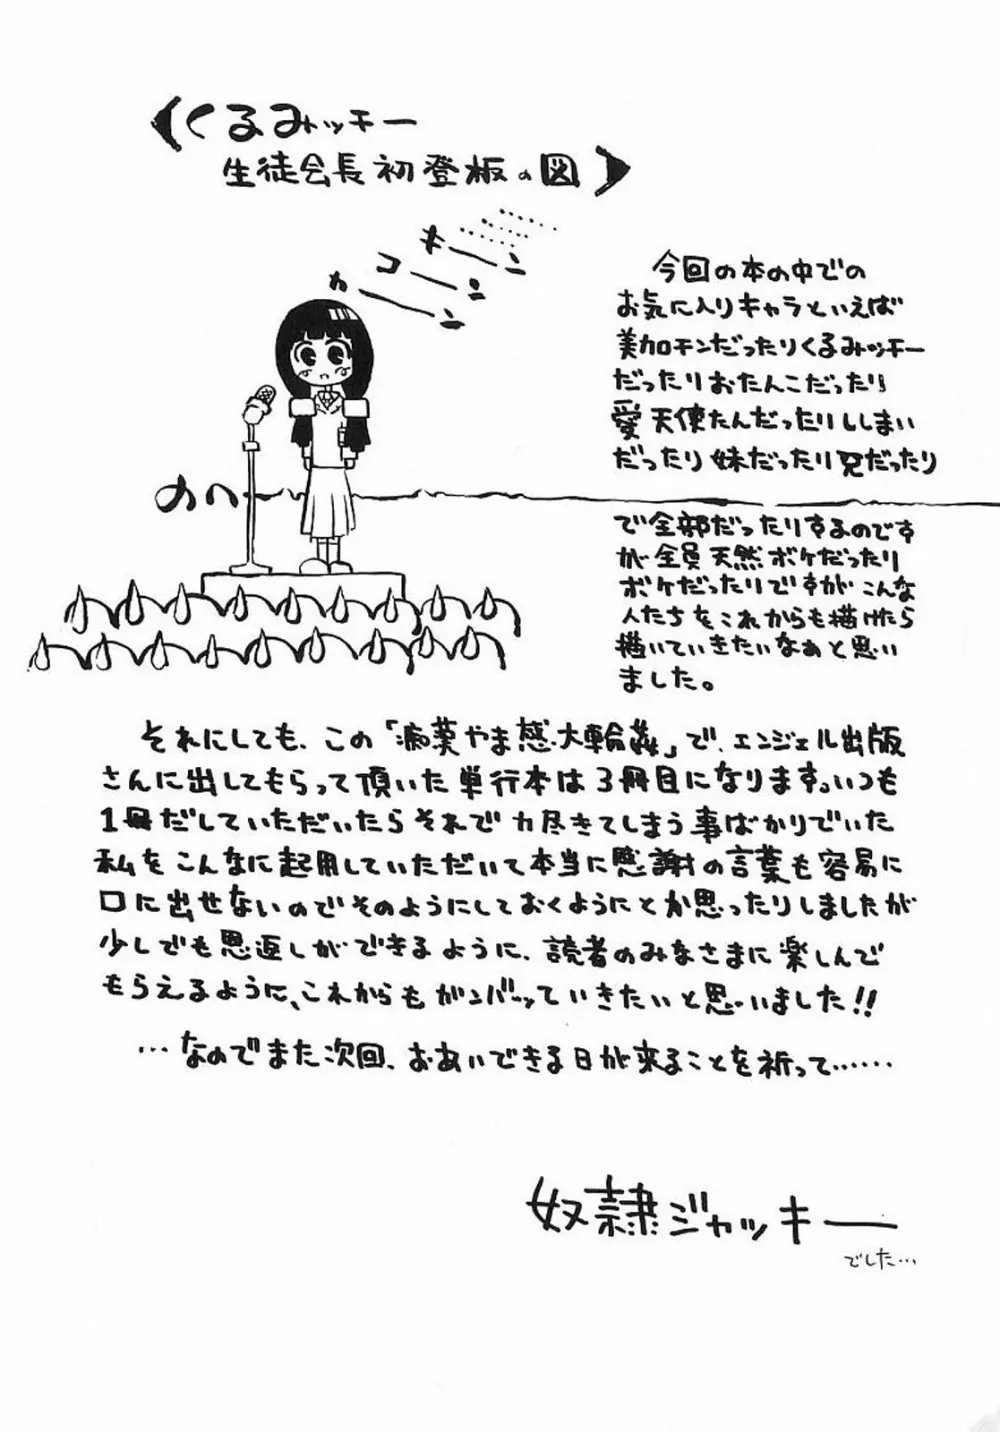 くるみッチー
生徒会長初登板の図
キーン
コーン
カーン
今回の本の中での
お気に入りキャラといえば
美加モンだったりくるみッチー
だったりおたんこだったり
愛天使たんだったりししまい
だったり妹だったり兄だったり
で全部だったりするのです
が全員天然ボケだったり
ボケだったりですがこんな
人たちをこれからも描けたら
描いていきたいなぁと思い
ました。
それにしても、この「痴漢やま感大輪姦」で、エンジェル出版
さんに出してもらって頂いた単行本は3冊目になります。いつも
1冊だしていただいたらそれで力尽きてしまう事ばかりでいた
私をこんなに起用していただいて本当に感謝の言葉も容易に
口に出せないのでそのようにしておくようにとか思ったりしましたが
少しでも恩返しができるように、読者のみなさまに楽しんで
もらえるように、これからもガンバッていきたいと思いました!!
…なのでまた次回、おあいできる日が来ることを祈って……
奴隷ジャッキー
でした…